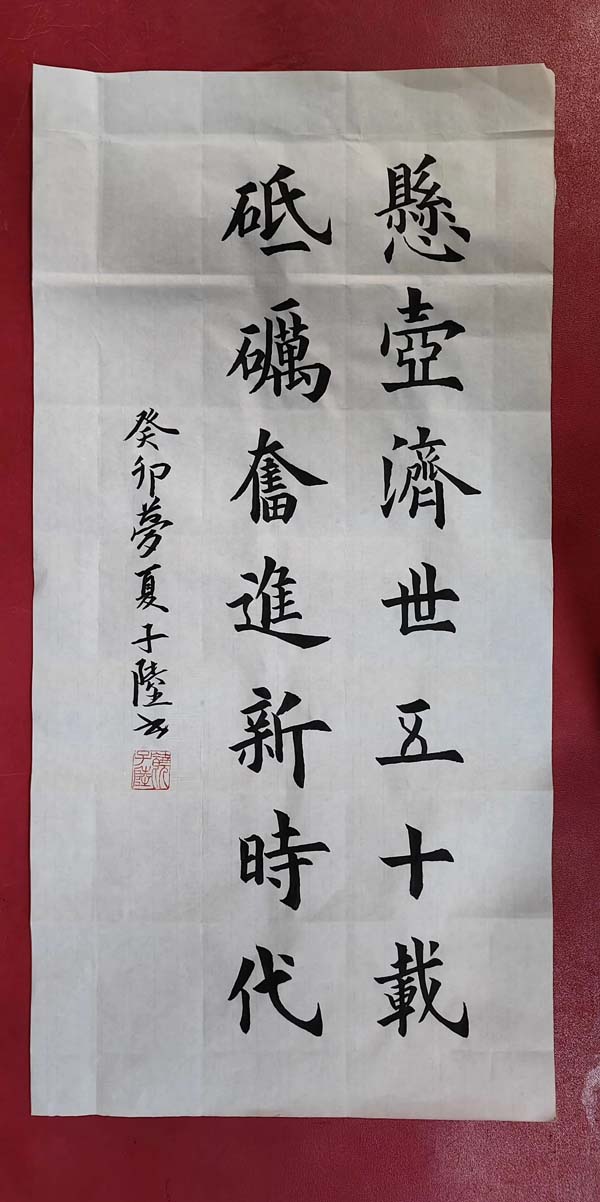 懸壺濟世五十載
砥礪奮進新時代
癸卯夢夏子陸书